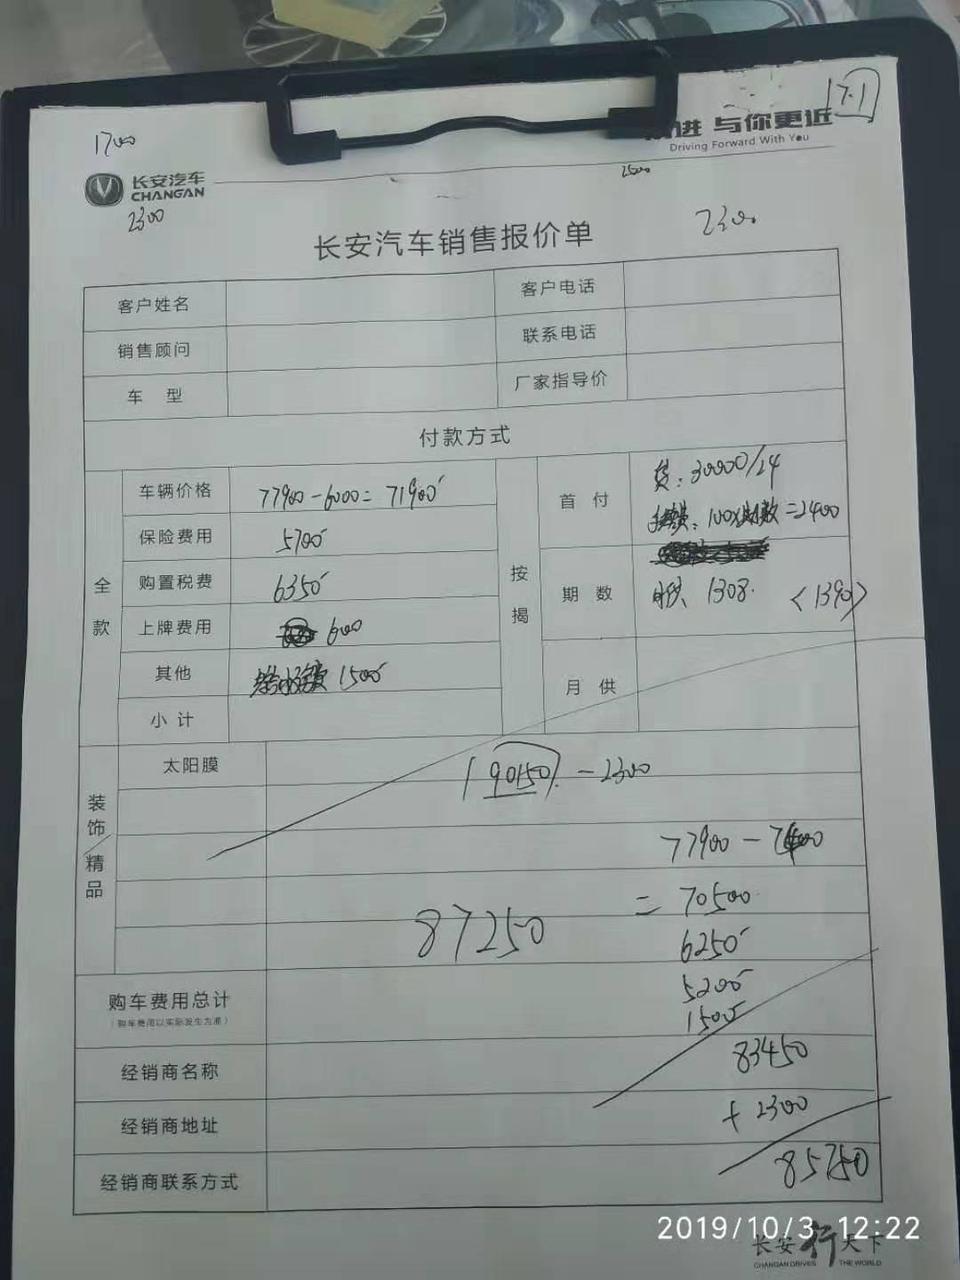 1700
与你更近
Driving Forward With You
长安汽车
CHANGAN
2300
2500
2300
长安汽车销售报价单
客户姓名
客户电话
销售顾问
联系电话
车 型
厂家指导价
付款方式
全款
车辆价格
77900-6000=71900
保险费用
5700
购置税费
6350
上牌费用
600
其他
1500
小计
按揭
首 付
贷:30000/24
=2400
期 数
1308. <1390>
月 供
装饰/精品
太阳膜
90150 -2300
77900-
=70500
87250
6250
5200
1500
购车费用总计
(购车费用以实际发生为准)
83450
经销商名称
+2300
经销商地址
85750
经销商联系方式
2019/10/3 12:22
长安行天下
CHANGAN DRIVES THE WORLD